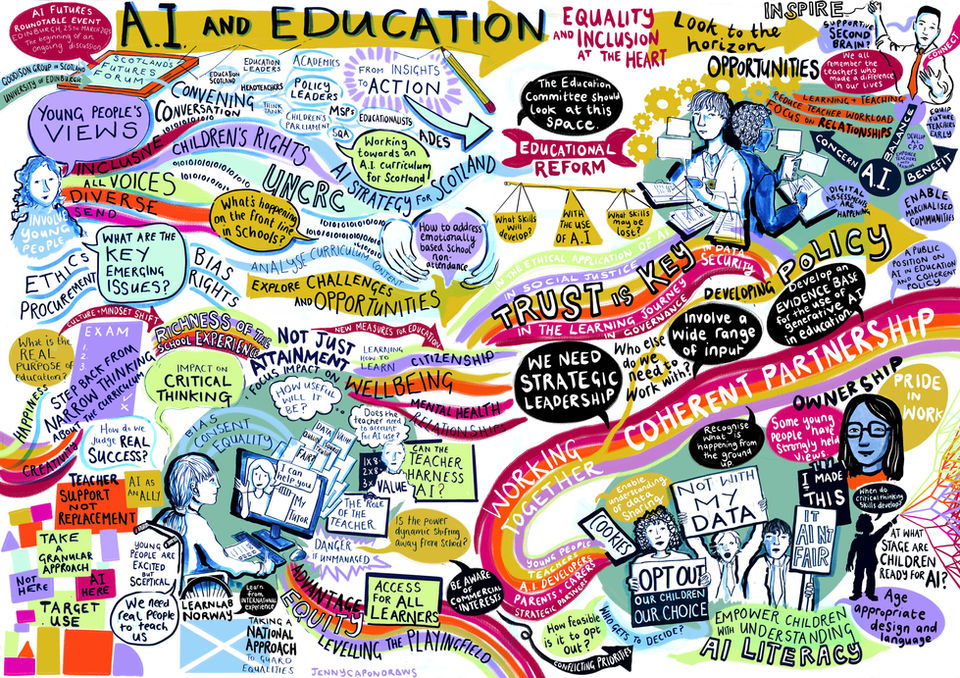 AI FUTURES
ROUNDTABLE EVENT
EDINBURGH, 25TH MARCH 2025
The beginning of an
ongoing discussion
A.I AND EDUCATION
EQUALITY
AND INCLUSION
AT THE HEART
Look to the
horizon
OPPORTUNITIES
INSPIRE
SUPPORTIVE
SECOND
BRAIN?
CONNECT
We all
remember the
teachers who
made a difference
in our lives
GOODISON GROUP IN SCOTLAND
UNIVERSITY OF EDINBURGH
SCOTLAND'S
FUTURES
FORUM
YOUNG PEOPLE'S
VIEWS
CONVENING
CONVERSATION
EDUCATION
SCOTLAND
EDUCATION
LEADERS
HEADTEACHERS
THINK
TANK
ACADEMICS
POLICY
LEADERS
CHILDREN'S
PARLIAMENT
MSPs
SQA
EDUCATIONALISTS
ADES
FROM INSIGHTS
TO
ACTION
Working
towards an
A.I. curriculum
for Scotland!
The Education
Committee should
look at this
space.
EDUCATIONAL
REFORM
LEARNING + TEACHING
REDUCE TEACHER WORKLOAD
FOCUS ON RELATIONSHIPS
BALANCE
CONCERN
A.I
BENEFIT
EQUIP
FUTURE
TEACHERS
EARLY
DIGITAL
ASSESSMENTS
ARE
HAPPENING
ENABLE
MARGINALISED
COMMUNITIES
INCLUSIVE
CHILDREN'S RIGHTS
UNCRC
AI STRATEGY FOR SCOTLAND
ALL VOICES
DIVERSE
SEND
INVOLVE
YOUNG
PEOPLE
What's happening
on the front line
in Schools?
ANALYSE CURRICULUM CONTENT
How to address
emotionally
based school
non-
attendance
What Skills
will develop?
WITH
THE USE
OF A.I
What Skills
may be
lost?
ETHICS
PROCUREMENT
WHAT ARE THE
KEY
EMERGING
ISSUES?
BIAS
RIGHTS
EXPLORE CHALLENGES
AND OPPORTUNITIES
IN THE ETHICAL APPLICATION OF AI
IN SOCIAL JUSTICE
TRUST IS KEY
IN DATA
SECURITY
IN THE LEARNING JOURNEY
IN GOVERNANCE
DEVELOPING
POLICY
Develop an
EVIDENCE BASE
for the use of
generative AI
in education
A PUBLIC
POSITION ON
AI IN EDUCATION
AND COHERENT
POLICY
CULTURE + MINDSET SHIFT
What is the
REAL
PURPOSE of
education?
EXAM
1.
2.
3.
STEP BACK FROM
NARROW THINKING
ABOUT THE CURRICULUM
RICHNESS OF THE
SCHOOL EXPERIENCE
NOT JUST
ATTAINMENT
FOCUS IMPACT ON
NEW MEASURES FOR EDUCATION
LEARNING
HOW TO
LEARN
CITIZENSHIP
WELLBEING
MENTAL HEALTH
RELATIONSHIPS
WE NEED
STRATEGIC
LEADERSHIP
Who else
do we
need to
work with?
Involve a
wide range
of input
HAPPINESS
CREATIVITY
How do we
judge REAL
SUCCESS?
IMPACT ON
CRITICAL
THINKING
HOW USEFUL
WILL IT
BE?
Does the
teacher need
to account
for AI use?
BIAS
CONSENT
EQUALITY
DATA
FAIR
I can
help you
AI My Tutor
1x8
2x8
3x
VALUE
CAN THE
TEACHER
HARNESS
AI?
THE ROLE
OF THE
TEACHER
Is the power
dynamic shifting
away from school?
DANGER
IF UNMANAGED
WORKING
TOGETHER
COHERENT PARTNERSHIP
OWNERSHIP
Recognise
what is
happening from
the ground
up.
Some young
people have
strongly held
views.
PRIDE
IN
WORK
I
MADE
THIS
When do
critical thinking
skills develop?
AT WHAT
STAGE ARE
CHILDREN
READY FOR AI?
Age
appropriate
design and
language
TEACHER
SUPPORT
NOT
REPLACEMENT
AI AS
AN ALLY
TAKE
A
GRANULAR
APPROACH
NOT
HERE
AI
HERE
TARGET
USE
YOUNG
PEOPLE ARE
EXCITED
BUT
SCEPTICAL
We need
real people
to teach
us
LEARNLAB
NORWAY
Learn
from
INTERNATIONAL
experience
TAKING A
NATIONAL
APPROACH
TO GUARD
EQUALITIES
ADVANTAGE
EQUITY
ACCESS
FOR ALL
LEARNERS
LEVELLING THE PLAYINGFIELD
BE AWARE
OF
COMMERCIAL
INTERESTS
YOUNG PEOPLE
TEACHERS
A.I. DEVELOPERS
PARENTS + CARERS
STRATEGIC PARTNERS
Enable
understanding
of data
sharing
COOKIES
NOT WITH
MY
DATA
IT
AIN'T
FAIR
OPT OUT
OUR CHILDREN
OUR CHOICE
How feasible
is it to opt
out?
WHO GETS TO DECIDE?
CONFLICTING PRIORITIES
EMPOWER CHILDREN
WITH UNDERSTANDING
AI LITERACY
JENNYCAPONDRAWS